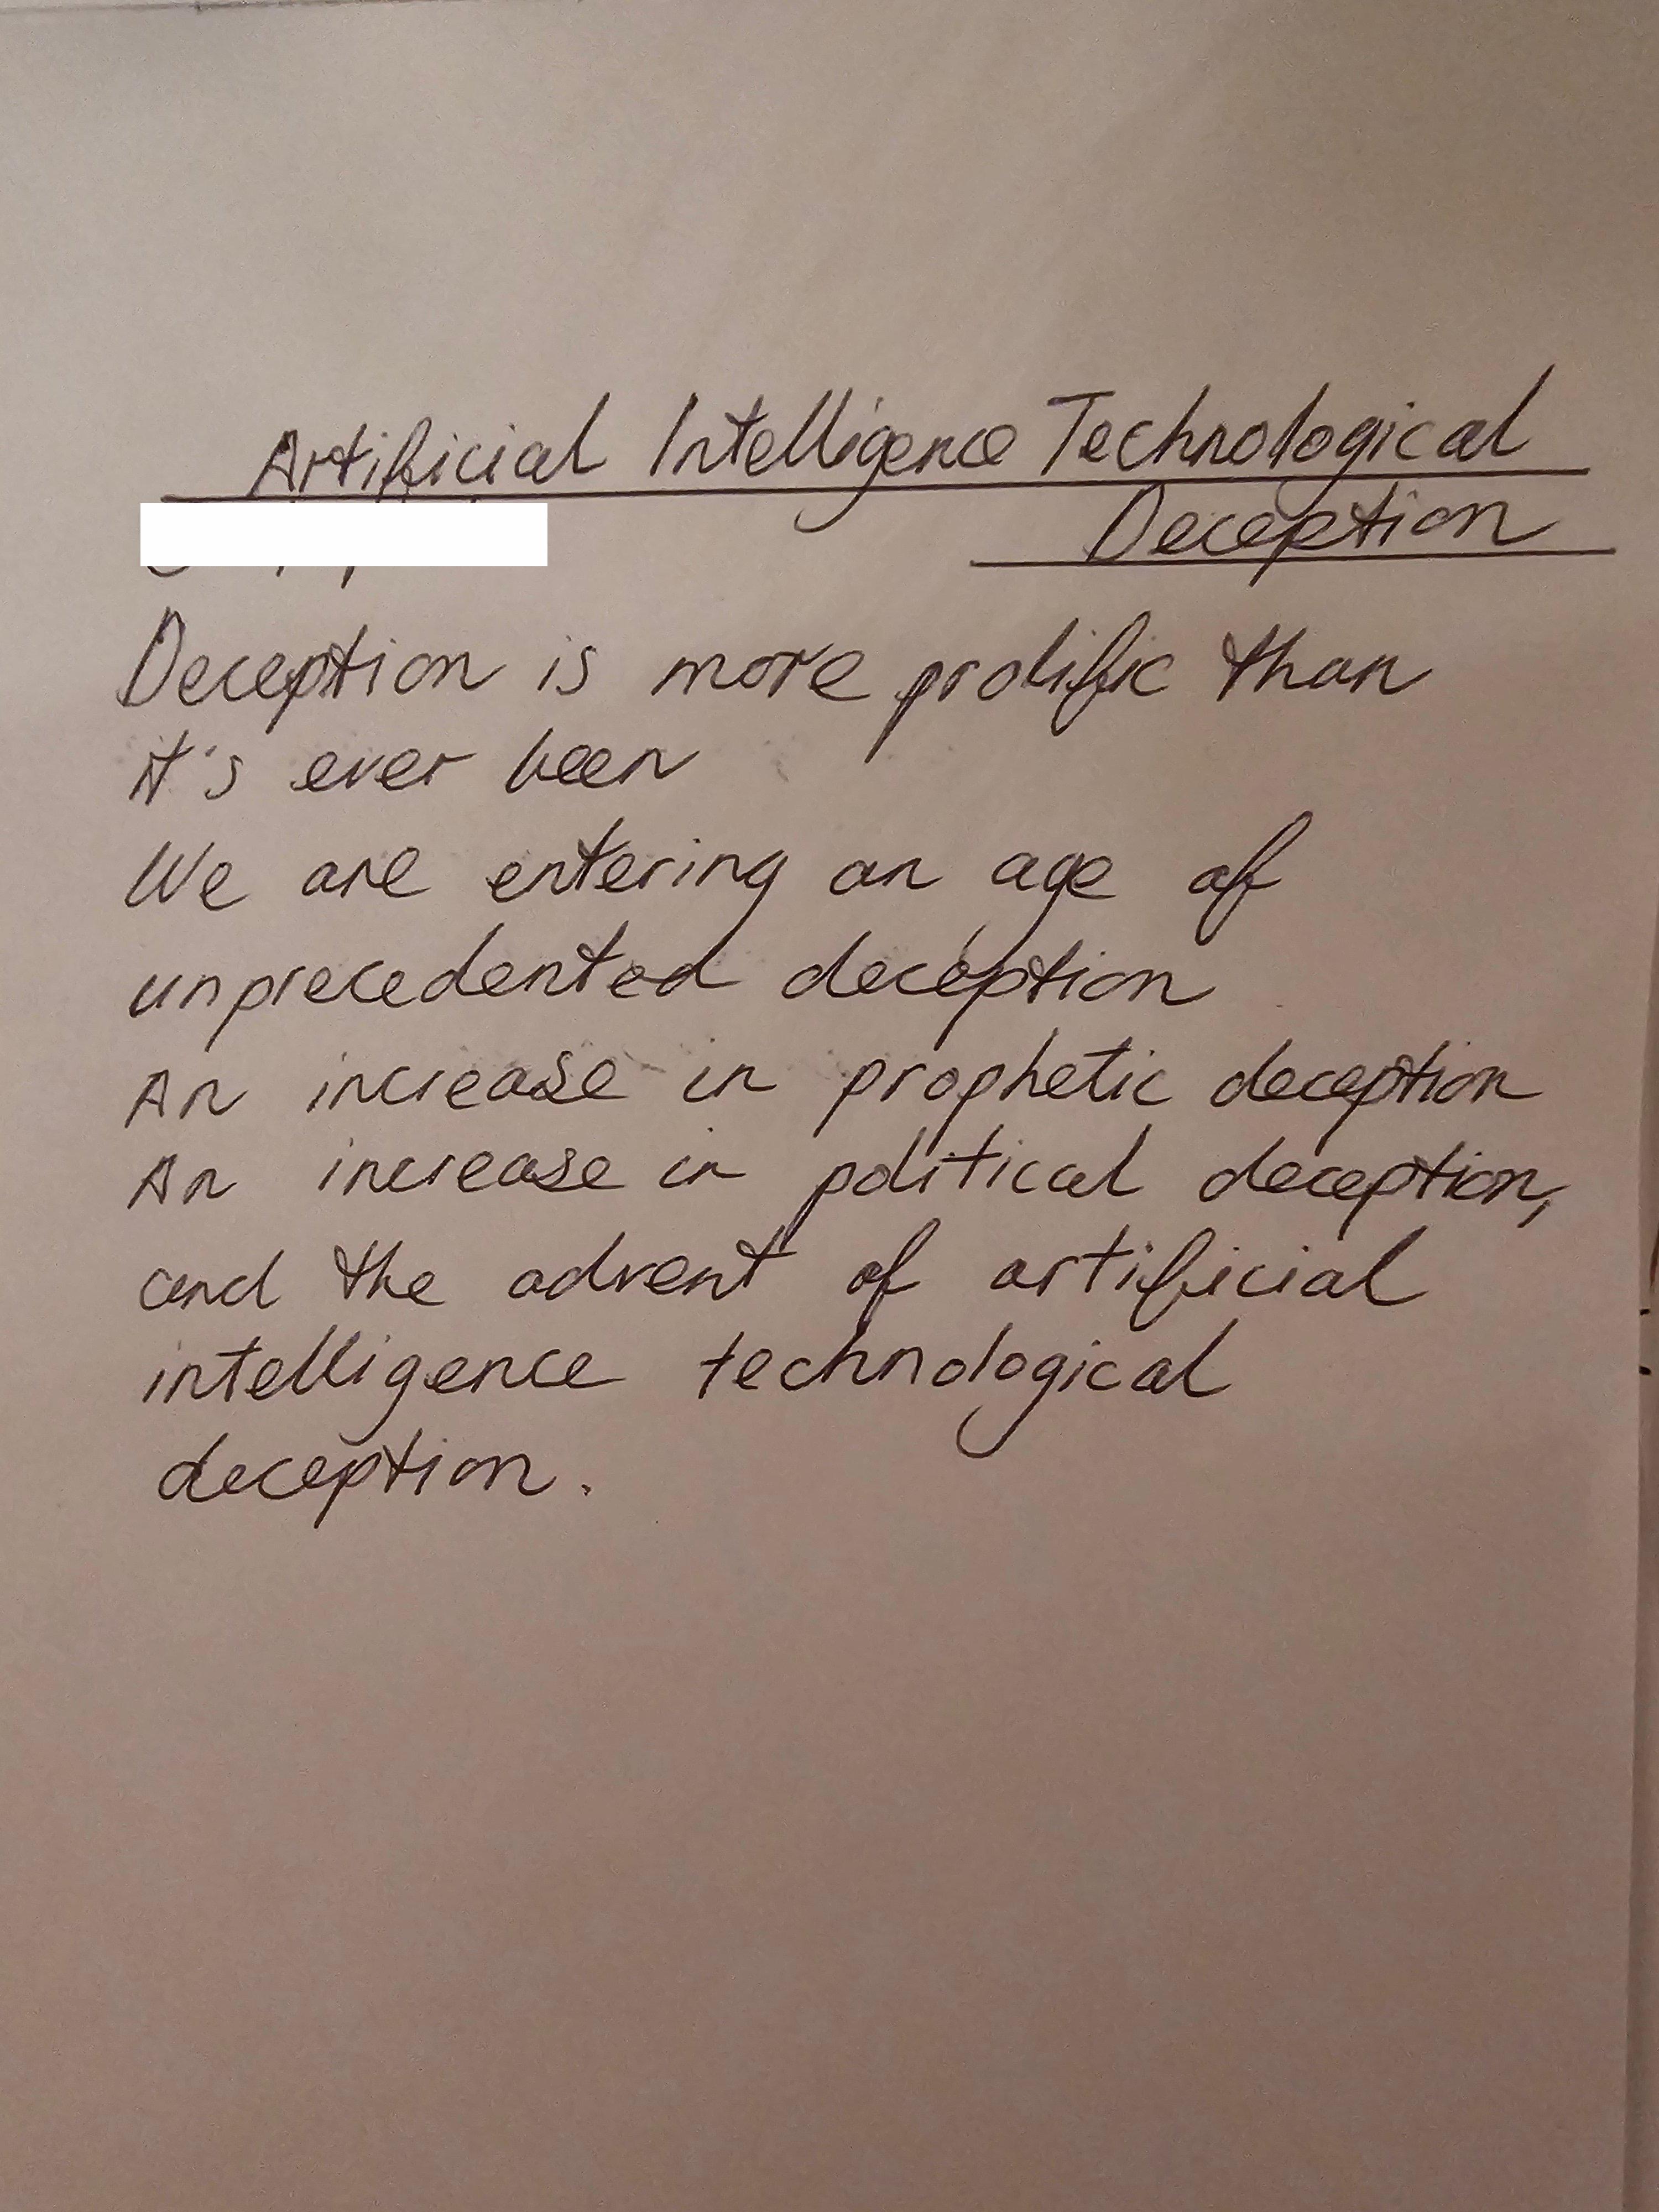 Artificial Intelligence Technological
Deception
Deception is more prolific than
it's ever been
We are entering an age of
unprecedented deception
An increase in prophetic deception
An increase in political deception,
and the advent of artificial
intelligence technological
deception.